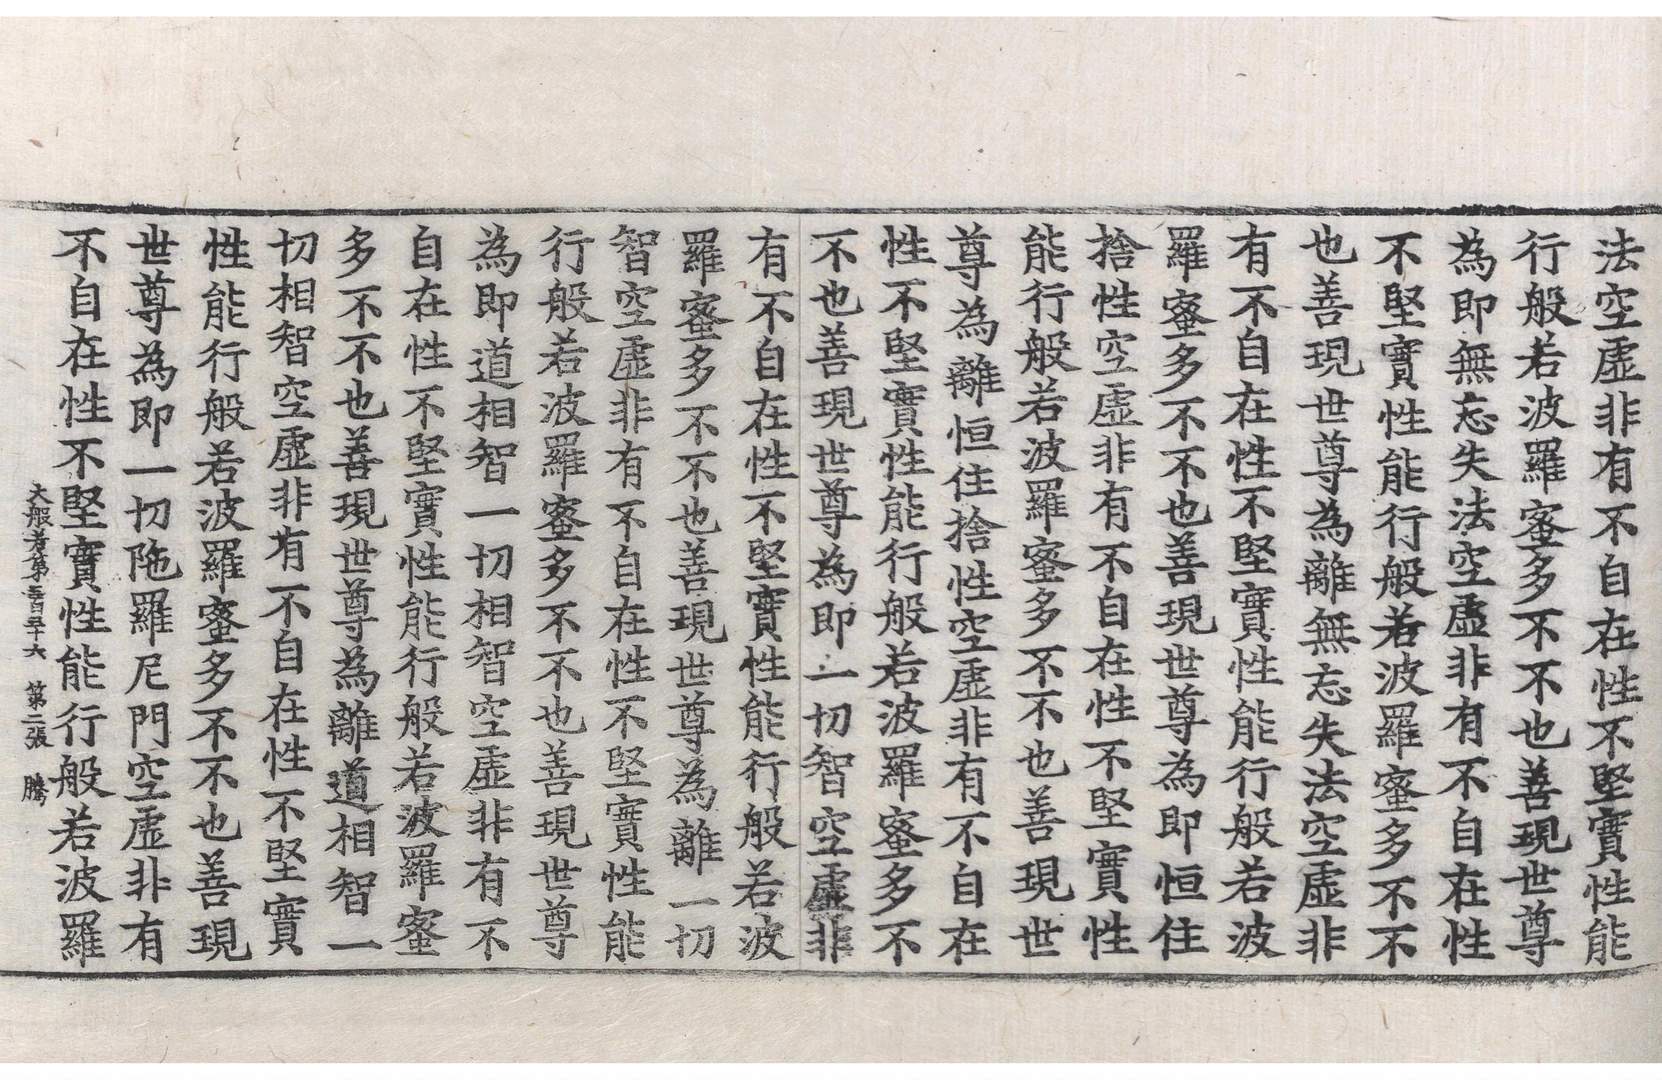 法空虛非有不自在性不堅實性能
行般若波羅蜜多不不也善現世尊
為即無忘失法空虛非有不自在性
不堅實性能行般若波羅蜜多不不
也善現世尊為離無忘失法空虛非
有不自在性不堅實性能行般若波
羅蜜多不不也善現世尊為即恒住
捨性空虛非有不自在性不堅實性
能行般若波羅蜜多不不也善現世
尊為離恒住捨性空虛非有不自在
性不堅實性能行般若波羅蜜多不
不也善現世尊為即一切智空虛非
有不自在性不堅實性能行般若波
羅蜜多不不也善現世尊為離一切
智空虛非有不自在性不堅實性能
行般若波羅蜜多不不也善現世尊
為即道相智一切相智空虛非有不
自在性不堅實性能行般若波羅蜜
多不不也善現世尊為離道相智一
切相智空虛非有不自在性不堅實
性能行般若波羅蜜多不不也善現
世尊為即一切陁羅尼門空虛非有
不自在性不堅實性能行般若波羅
大般若第五百五十六 第二張 騰